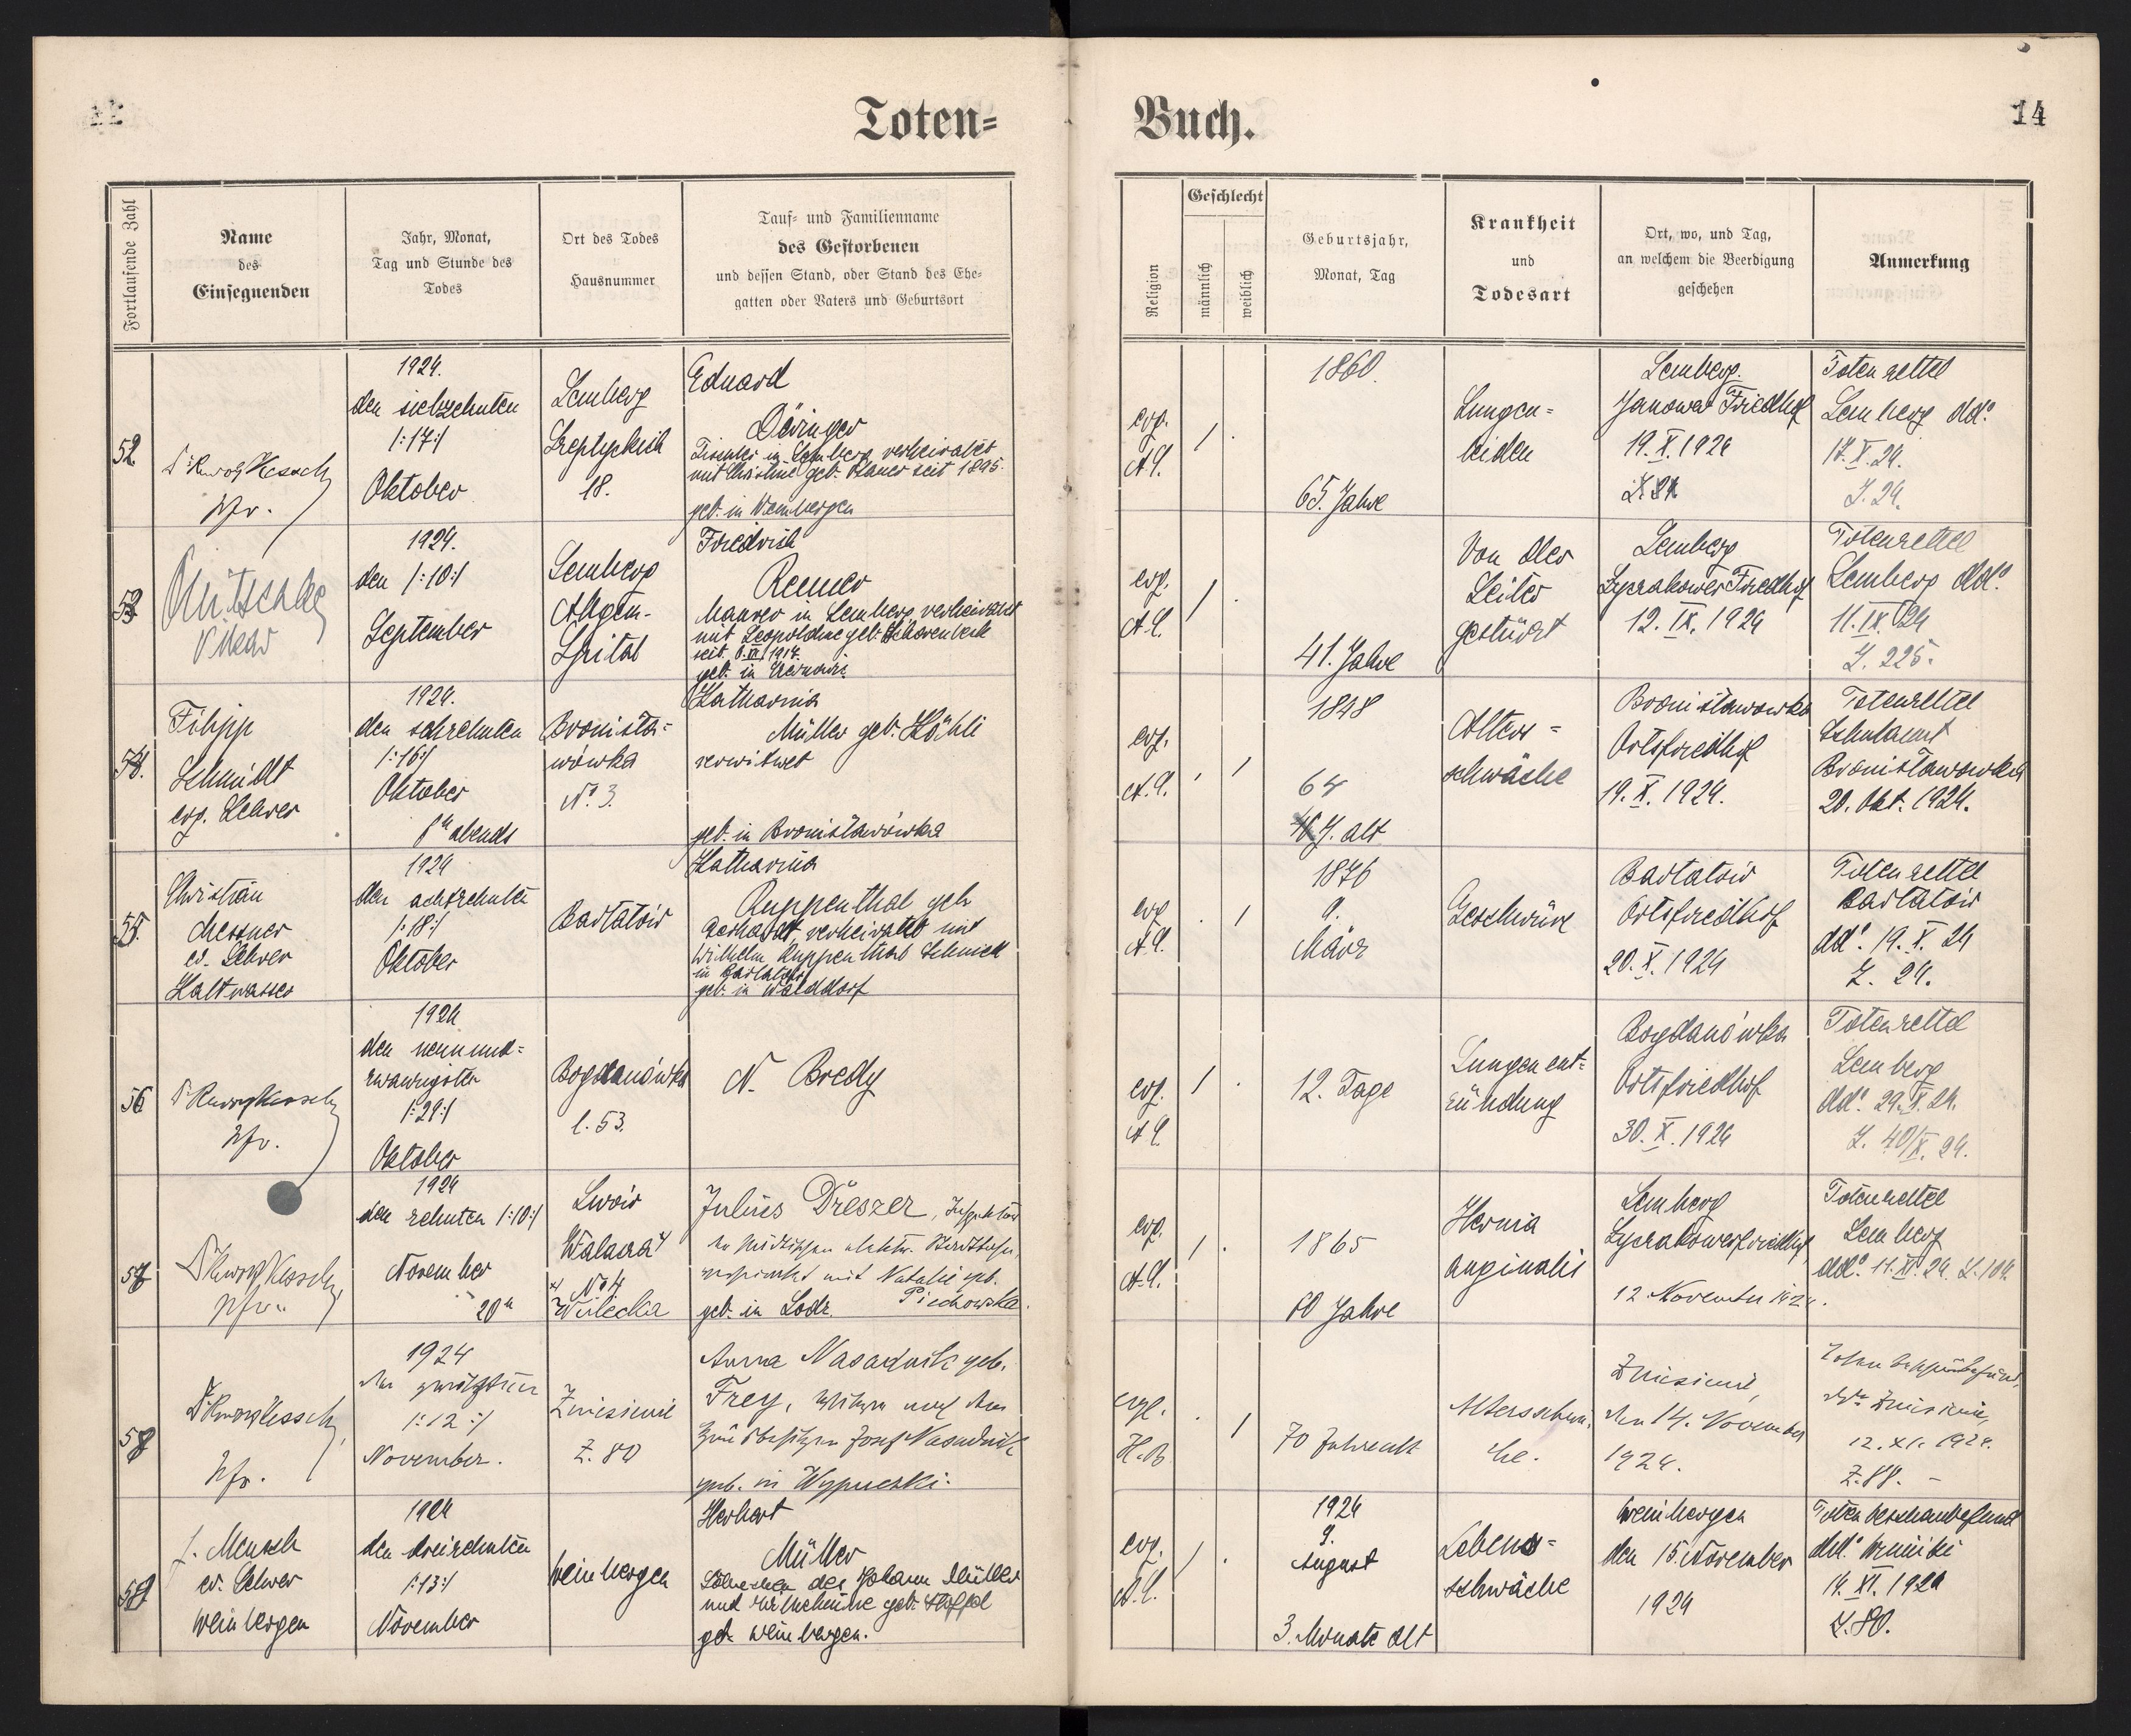 Toten=
Buch.
14
Fortlaufende Zahl
Name
des
Einsegnenden
Jahr, Monat,
Tag und Stunde des
Todes
Ort des Todes
Hausnummer
Tauf= und Familienname
des Gestorbenen
und dessen Stand, oder Stand des Ehe=
gatten oder Vaters und Geburtsort
Religion
Geschlecht
männlich
weiblich
Geburtsjahr,
Monat, Tag
Krankheit
und
Todesart
Ort, wo, und Tag,
an welchem die Beerdigung
geschehen
Anmerkung
52
Kesselring
Pfr.
1924.
den siebzehnten
/:17:/
Oktober
Lemberg
Szeptyckich
18.
Eduard
Döringer
Tischler in Lemberg verheiratet
mit Christine geb. seit 1895.
geb. in Weinbergen
evg.
A.C.
1860.
65. Jahre
Lungen=
leiden
Lemberg.
Janower Friedhof
19. X. 1924
Totenzettel
Lemberg dd.
17. X. 24.
Z. 24.
53
Vikar
1924.
den /:10:/
September
Lemberg
Allgem.
Spital
Friedrich
Reimer
Maurer in Lemberg verheiratet
mit Leopoldine geb.
seit 1917.
geb. in
evg.
A.C.
41. Jahre
Von der
Leiter
gestürzt
Lemberg
Lyczakower Friedhof
12. IX. 1924
Totenzettel
Lemberg dd.
11. IX. 24
Z. 225.
54.
Filipp
Schmidt
evg. Lehrer
1924.
den sechzehnten
/:16:/
Oktober
8h abends
Bronisła=
wówka
No. 3.
Katharina
Müller geb. Köhli
verwitwet
geb. in Bronisławówka
evg.
A.C.
1848
64
J. alt
Alters=
schwäche
Bronisławowka
Ortsfriedhof
19. X. 1924.
Totenzettel
Schulamt
Bronisławowka
20. Okt. 1924.
55.
Christian
Messner
ev. Lehrer
Kaltwasser
1924
den achtzehnten
/:18:/
Oktober
Bartatów
Katharina
Ruppenthal geb.
Gerhardt verheiratet mit
Wilhelm Ruppenthal Schmied
in Bartatów
geb. in Walddorf
evg.
A.C.
1876
9.
März
Geschwüre
Bartatów
Ortsfriedhof
20. X. 1924
Totenzettel
Bartatów
dd. 19. X. 24
Z. 24.
56
Kesselring
Pfr.
1924
den neunund=
zwanzigsten
/:29:/
Oktober
Bogdanówka
l. 53.
N. Bredy
evg.
A.C.
12. Tage
Lungenent=
zündung
Bogdanówka
Ortsfriedhof
30. X. 1924
Totenzettel
Lemberg
dd. 29. X. 24.
Z. 40/X. 24.
57
Kesselring
Pfr.
1924
den zehnten /:10:/
November
20h
Lwów
No 4
Wulecka
Julius Dreszer, Inspektor
der städtischen elektr. Stadtbahn
verheiratet mit Natalie geb.
Piechowska.
geb. in Lodz.
evg.
A.C.
1865
60 Jahre
Hernia
Lemberg
Lyczakowerfriedhof
12 November 1924.
Totenzettel
Lemberg
dd. 11. XI. 24. Z. 104.
58
Kesselring
Pfr.
1924
den zwölften
/:12:/
November.
Zniesienie
Z. 80
Anna Nasadnik geb.
Frey, Witwe nach dem
Grundbesitzer Josef Nasadnik
geb. in Wypuczki.
evgl.
H.B.
70 Jahre alt
Altersschwä=
che.
Zniesienie,
den 14. November
1924.
Totenbeschaubefund
ddo Zniesienie,
12. XI. 1924.
Z. 88. -
59
J. Mensch
ev. Lehrer
Weinbergen
1924
den dreizehnten
/:13:/
November
Weinbergen
Herbert
Müller
Söhnchen des Johann Müller
und Wilhelmine geb.
geb. Weinbergen.
evg.
A.C.
1924
9.
August
3. Monate alt
Lebens=
schwäche
Weinbergen
den 15. November
1924
Totenbeschaubefund
dd. Winniki
14. XI. 1924
Z. 80.